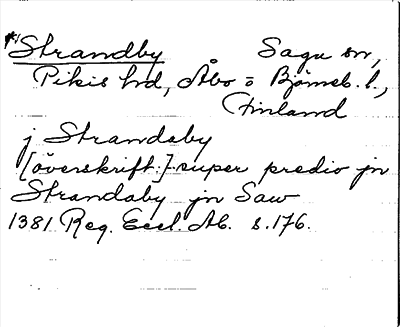 *Strandby Sagu sn,
Pikis hd, Åbo o Björneb. l.,
Finland
j Strandaby
[överskrift:] super predio jn
Strandaby jn Saw
1381 Reg. Eccl. Ab. s.176.